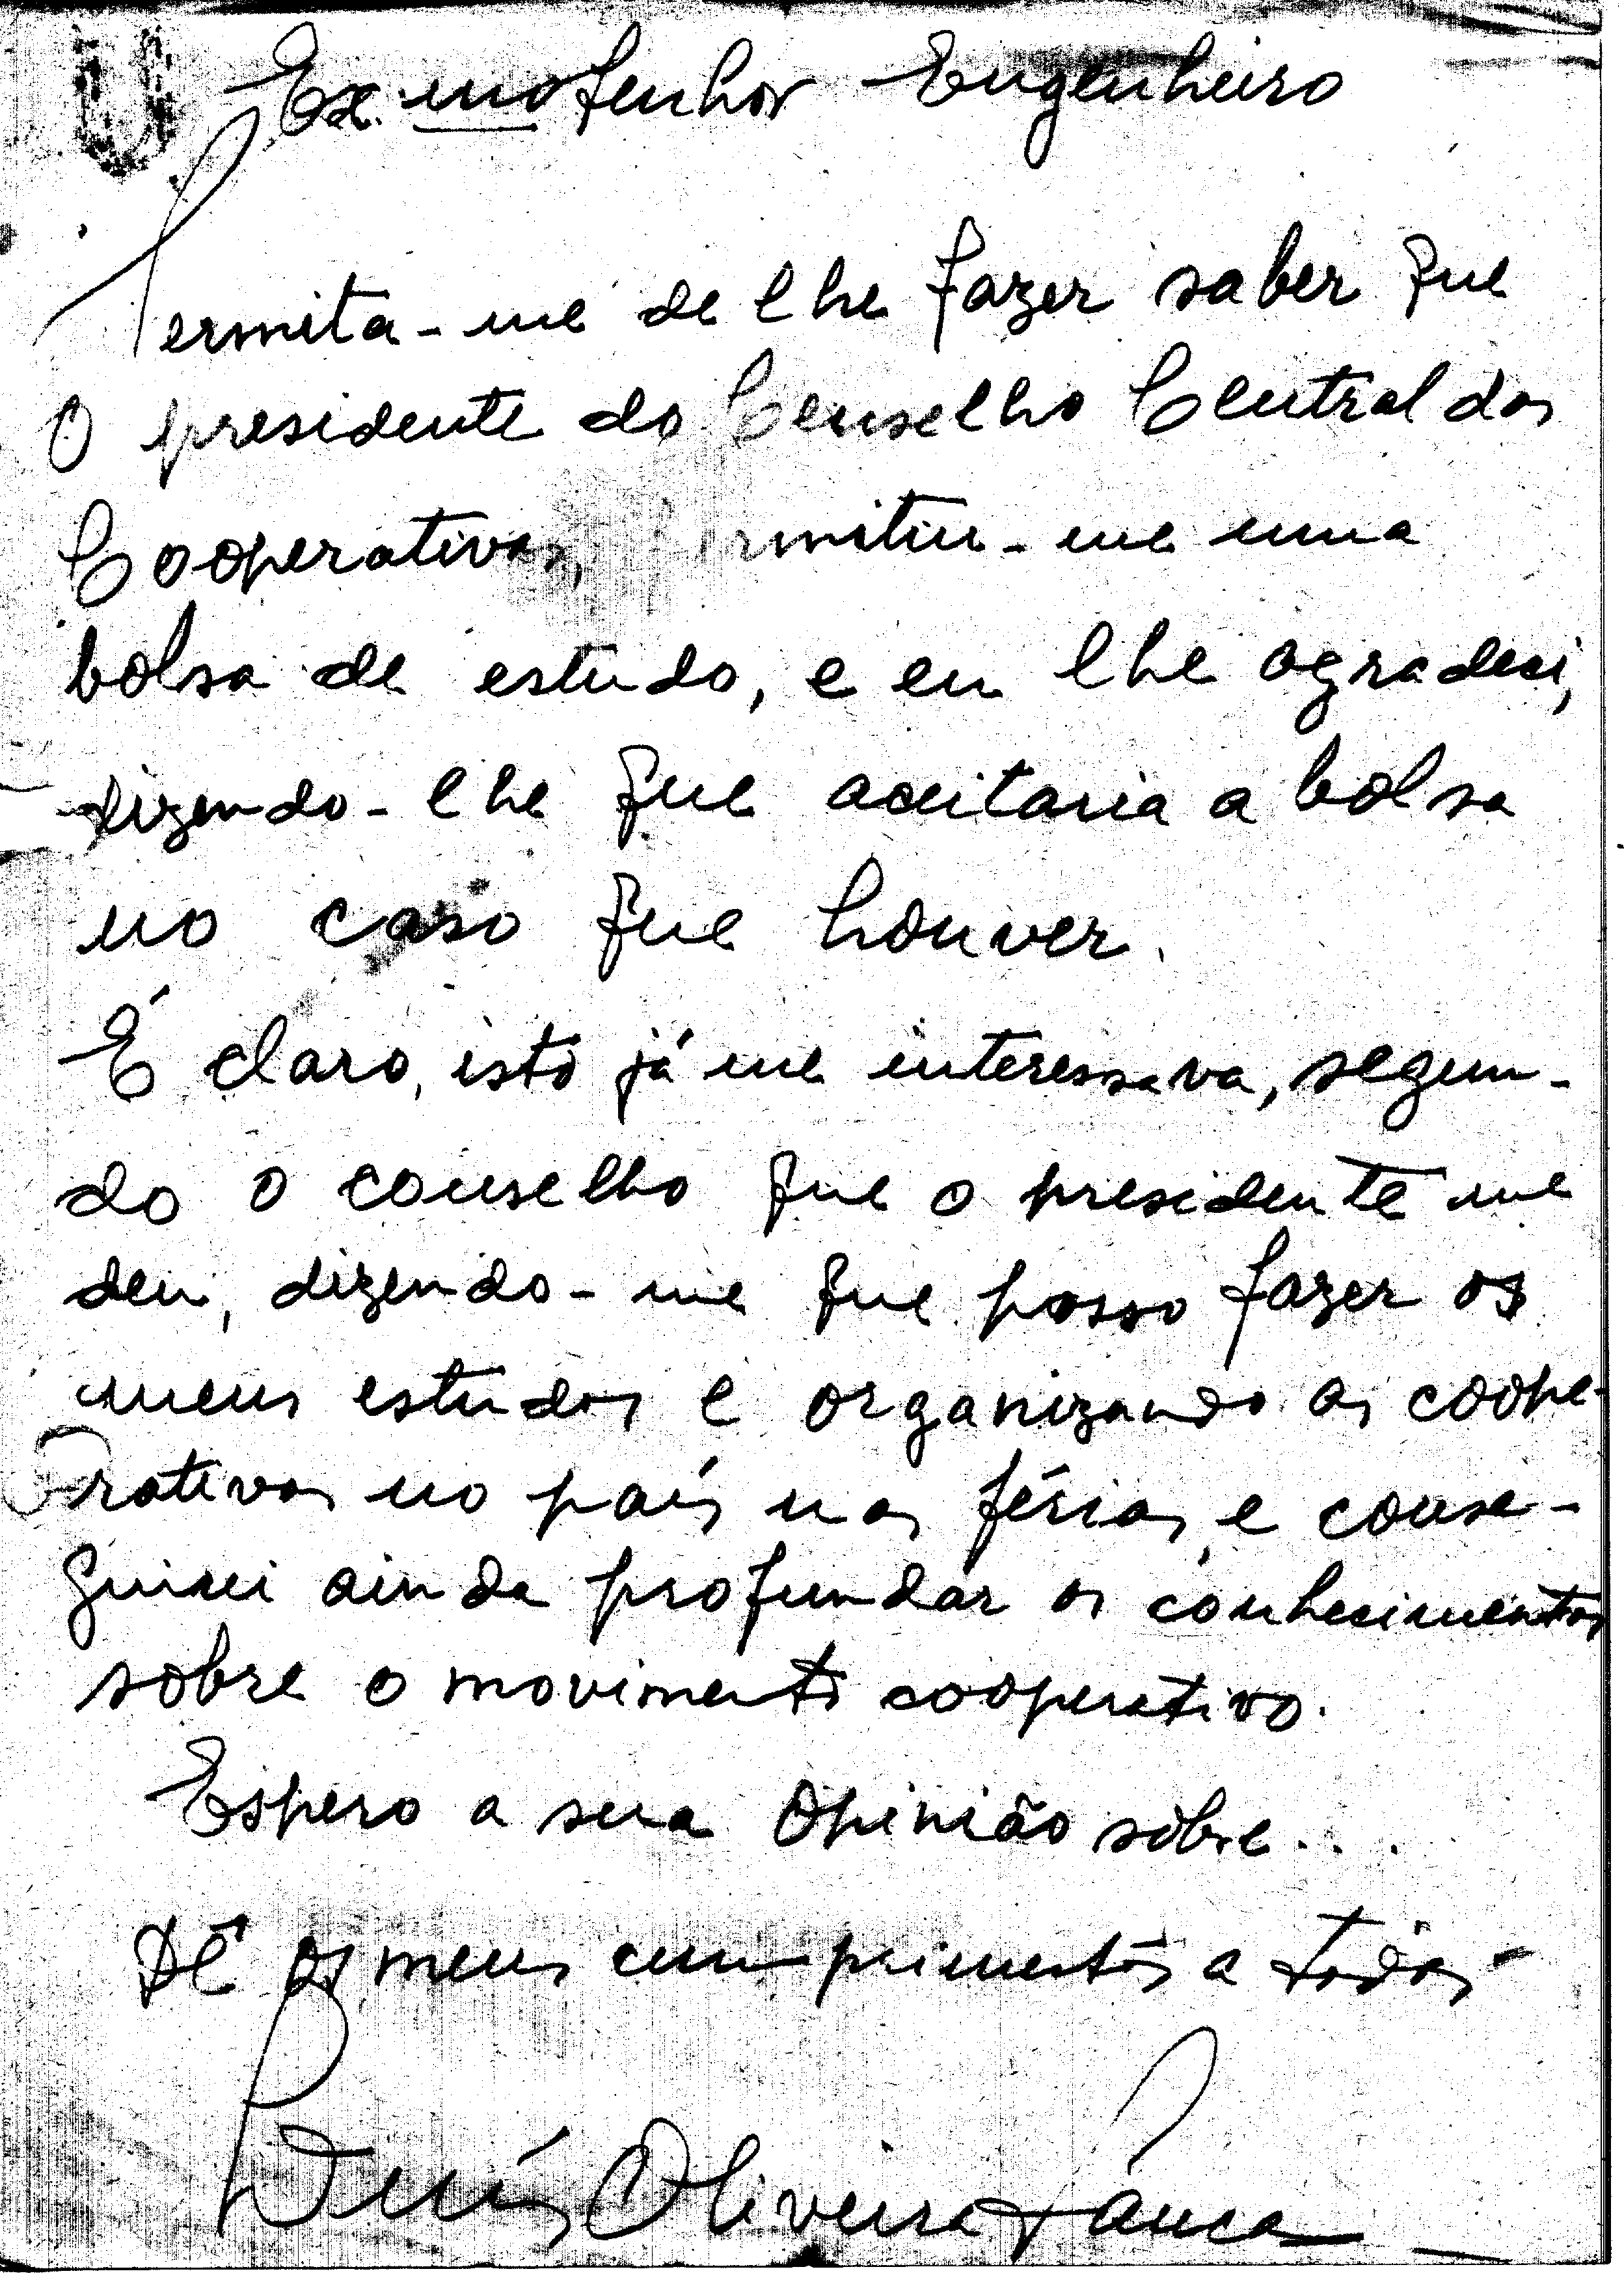 Ex.mo Senhor Engenheiro
Permita-me de lhe fazer saber que
O presidente do Conselho Central das
Cooperativas, mitiu-me uma
bolsa de estudo, e eu lhe agradeci,
dizendo-lhe que aceitaria a bolsa
no caso que houver.
É claro, isto já me interessava, segun-
do o conselho que o presidente me
deu, dizendo-me que posso fazer os
meus estudos e organizando as coope-
rativas no país nas férias, e conse-
guirei ainda profundar os conhecimentos
sobre o movimento cooperativo.
Espero a sua Opinião sôbre...
Dê os meus cumprimentos a todos-
Luís Oliveira